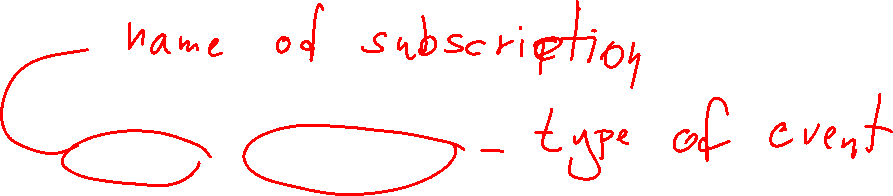 name of subscription
type of event